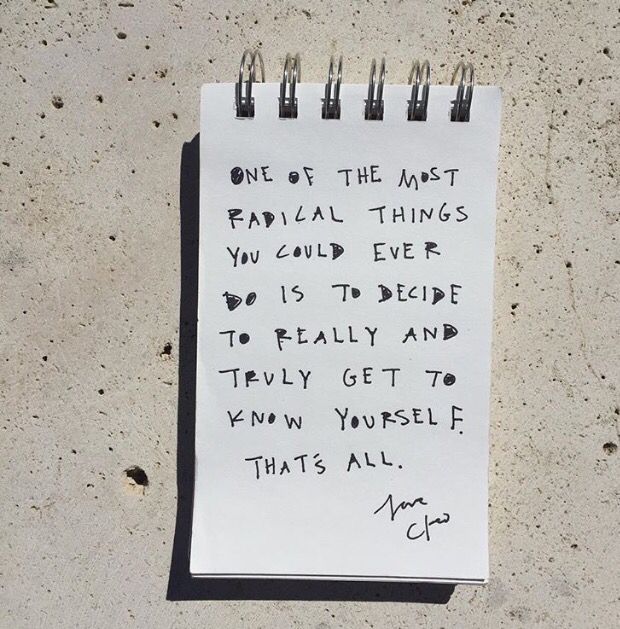 ONE OF THE MOST
RADICAL THINGS
YOU COULD EVER
DO IS TO DECIDE
TO REALLY AND
TRULY GET TO
KNOW YOURSELF.
THAT'S ALL.
love
Cleo